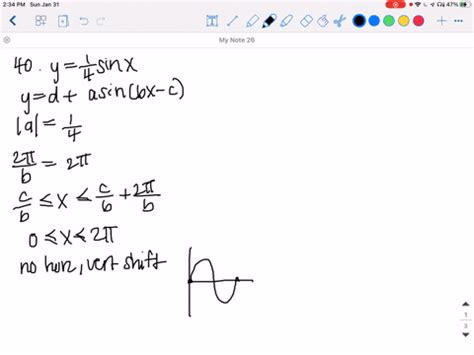 2:34 PM Sun Jan 31
47%
My Note 26
40. y = 1/4 sin x
y = d + a sin(bx - c)
|a| = 1/4
2π/b = 2π
c/b ≤ x ≤ c/b + 2π/b
0 ≤ x ≤ 2π
no horz, vert shift
1
3